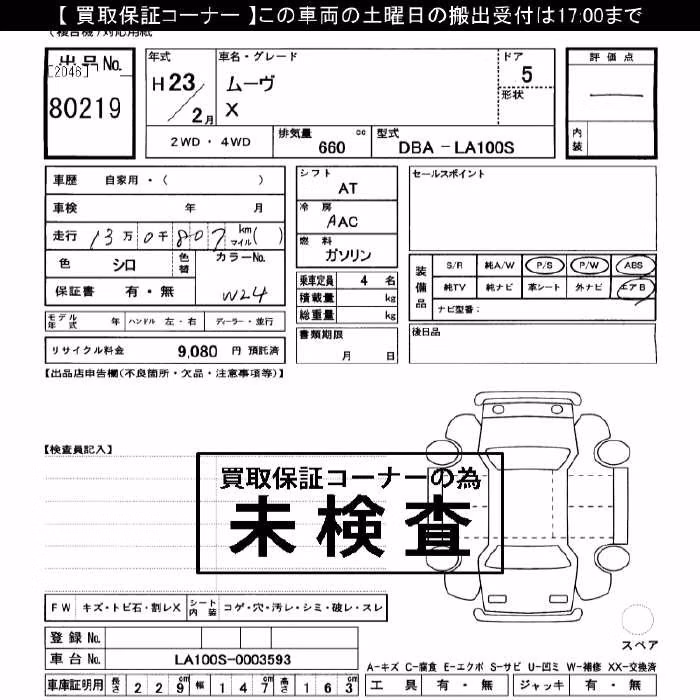 【 買取保証コーナー 】この車両の土曜日の搬出受付は17:00まで
(複合機)対応用紙
出品No.
[2046]
80219
年式
H23/2月
車名・グレード
ムーヴ
X
ドア
5
形状
評価点
内装
2WD・4WD
排気量 cc
660
型式
DBA－LA100S
車歴 自家用・( )
車検 年 月
走行 13万0千807 km マイル( )
色 シロ
色替
カラーNo.
W24
保証書 有・無
モデル年式 年 ハンドル 左・右 ディーラー・並行
リサイクル料金 9,080 円 預託済
シフト
AT
冷房
AAC
燃料
ガソリン
乗車定員 4 名
積載量 kg
総重量 kg
書類期限
月 日
セールスポイント
装備品
S/R 純A/W P/S P/W ABS
純TV 純ナビ 革シート 外ナビ エアB
ナビ型番：
後日品
【出品店申告欄(不良箇所・欠品・注意事項等)】
【検査員記入】
買取保証コーナーの為
未検査
FW キズ・トビ石・割レX シート内装 コゲ・穴・汚レ・シミ・破レ・スレ
登録No.
車台No. LA100S-0003593
車庫証明用 長さ 229cm 幅 147cm 高さ 163cm
スペア
A-キズ C-腐食 E-エクボ S-サビ U-凹ミ W-補修 XX-交換済
工具 有・無 ジャッキ 有・無